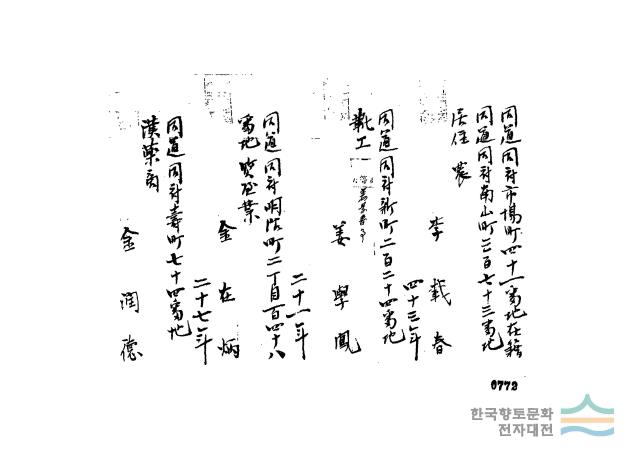 同道同府市場町四十一番地在籍
同道同府南山町三百七十三番地
居住 農
李載春
四十三年
同道同府新町二百二十四番地
職工
姜學鳳
二十一年
同道同府明治町二丁目百四十八
番地
金在炳
二十七年
同道同府壽町七十四番地
漢藥商
金潤德
0772
한국향토문화
전자대전